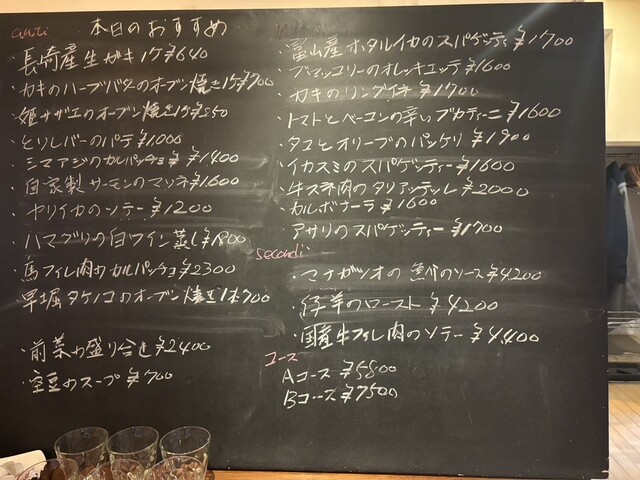 本日のおすすめ
・長崎産生ガキ 1ケ ¥640
・カキのハーブバターのオーブン焼き 1ケ ¥700
・姫サザエのオーブン焼き 1ケ ¥550
・とりレバーのパテ ¥1,000
・シマアジのカルパッチョ ¥1400
・自家製サーモンのマリネ ¥1600
・ヤリイカのソテー ¥1200
・ハマグリの白ワイン蒸し ¥1800
・馬フィレ肉のカルパッチョ ¥2300
・早堀タケノコのオーブン焼き 1本 ¥700
・前菜の盛り合せ ¥2400
・空豆のスープ ¥700
・富山産ホタルイカのスパゲッティ ¥1700
・ブロッコリーのオレッキエッテ ¥1600
・カキのリングイネ ¥1700
・トマトとベーコンの辛いブカティーニ ¥1600
・タコとオリーブのパッケリ ¥1900
・イカスミのスパゲッティー ¥1600
・牛スネ肉のタリアッテッレ ¥2000
・カルボナーラ ¥1600
・アサリのスパゲッティー ¥1700
secondi
・マナガツオの 魚介のソース ¥4200
・仔羊のロースト ¥4200
・国産牛フィレ肉のソテー ¥4,400
コース
Aコース ¥5800
Bコース ¥7500